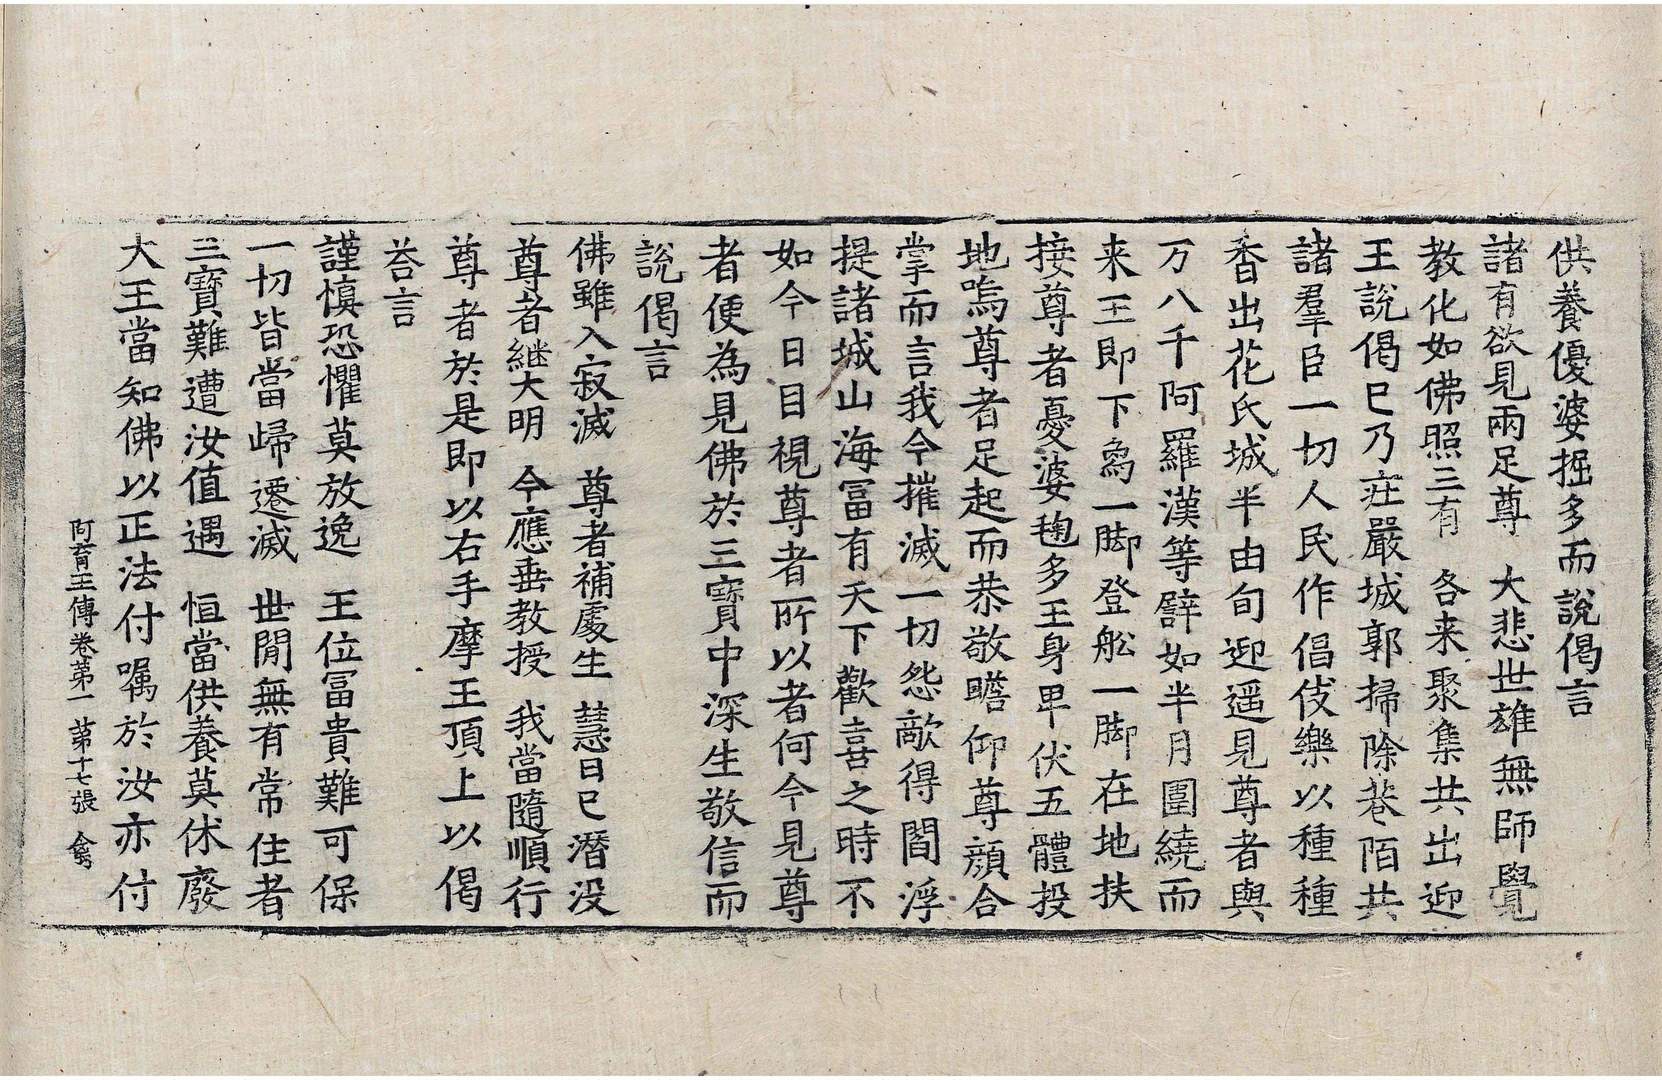 供養優婆掘多而說偈言
諸有欲見兩足尊 大悲世雄無師覺
教化如佛照三有 各来聚集共出迎
王說偈已乃莊嚴城郭掃除巷陌共
諸羣臣一切人民作倡伎樂以種種
香出花氏城半由旬迎遥見尊者與
万八千阿羅漢等譬如半月圍繞而
来王即下為一脚登舩一脚在地扶
接尊者憂婆毱多王身卑伏五體投
地嗚尊者足起而恭敬瞻仰尊顔合
掌而言我今摧滅一切怨敵得閻浮
提諸城山海冨有天下歡喜之時不
如今日目視尊者所以者何今見尊
者便為見佛於三寶中深生敬信而
說偈言
佛雖入寂滅 尊者補處生 慧日已潜没
尊者継大明 今應垂教授 我當隨順行
尊者於是即以右手摩王頂上以偈
荅言
謹慎恐懼莫放逸 王位冨貴難可保
一切皆當歸遷滅 世閒無有常住者
三寶難遭汝值遇 恒當供養莫休廢
大王當知佛以正法付囑於汝亦付
阿育王傳卷苐一 苐十七張